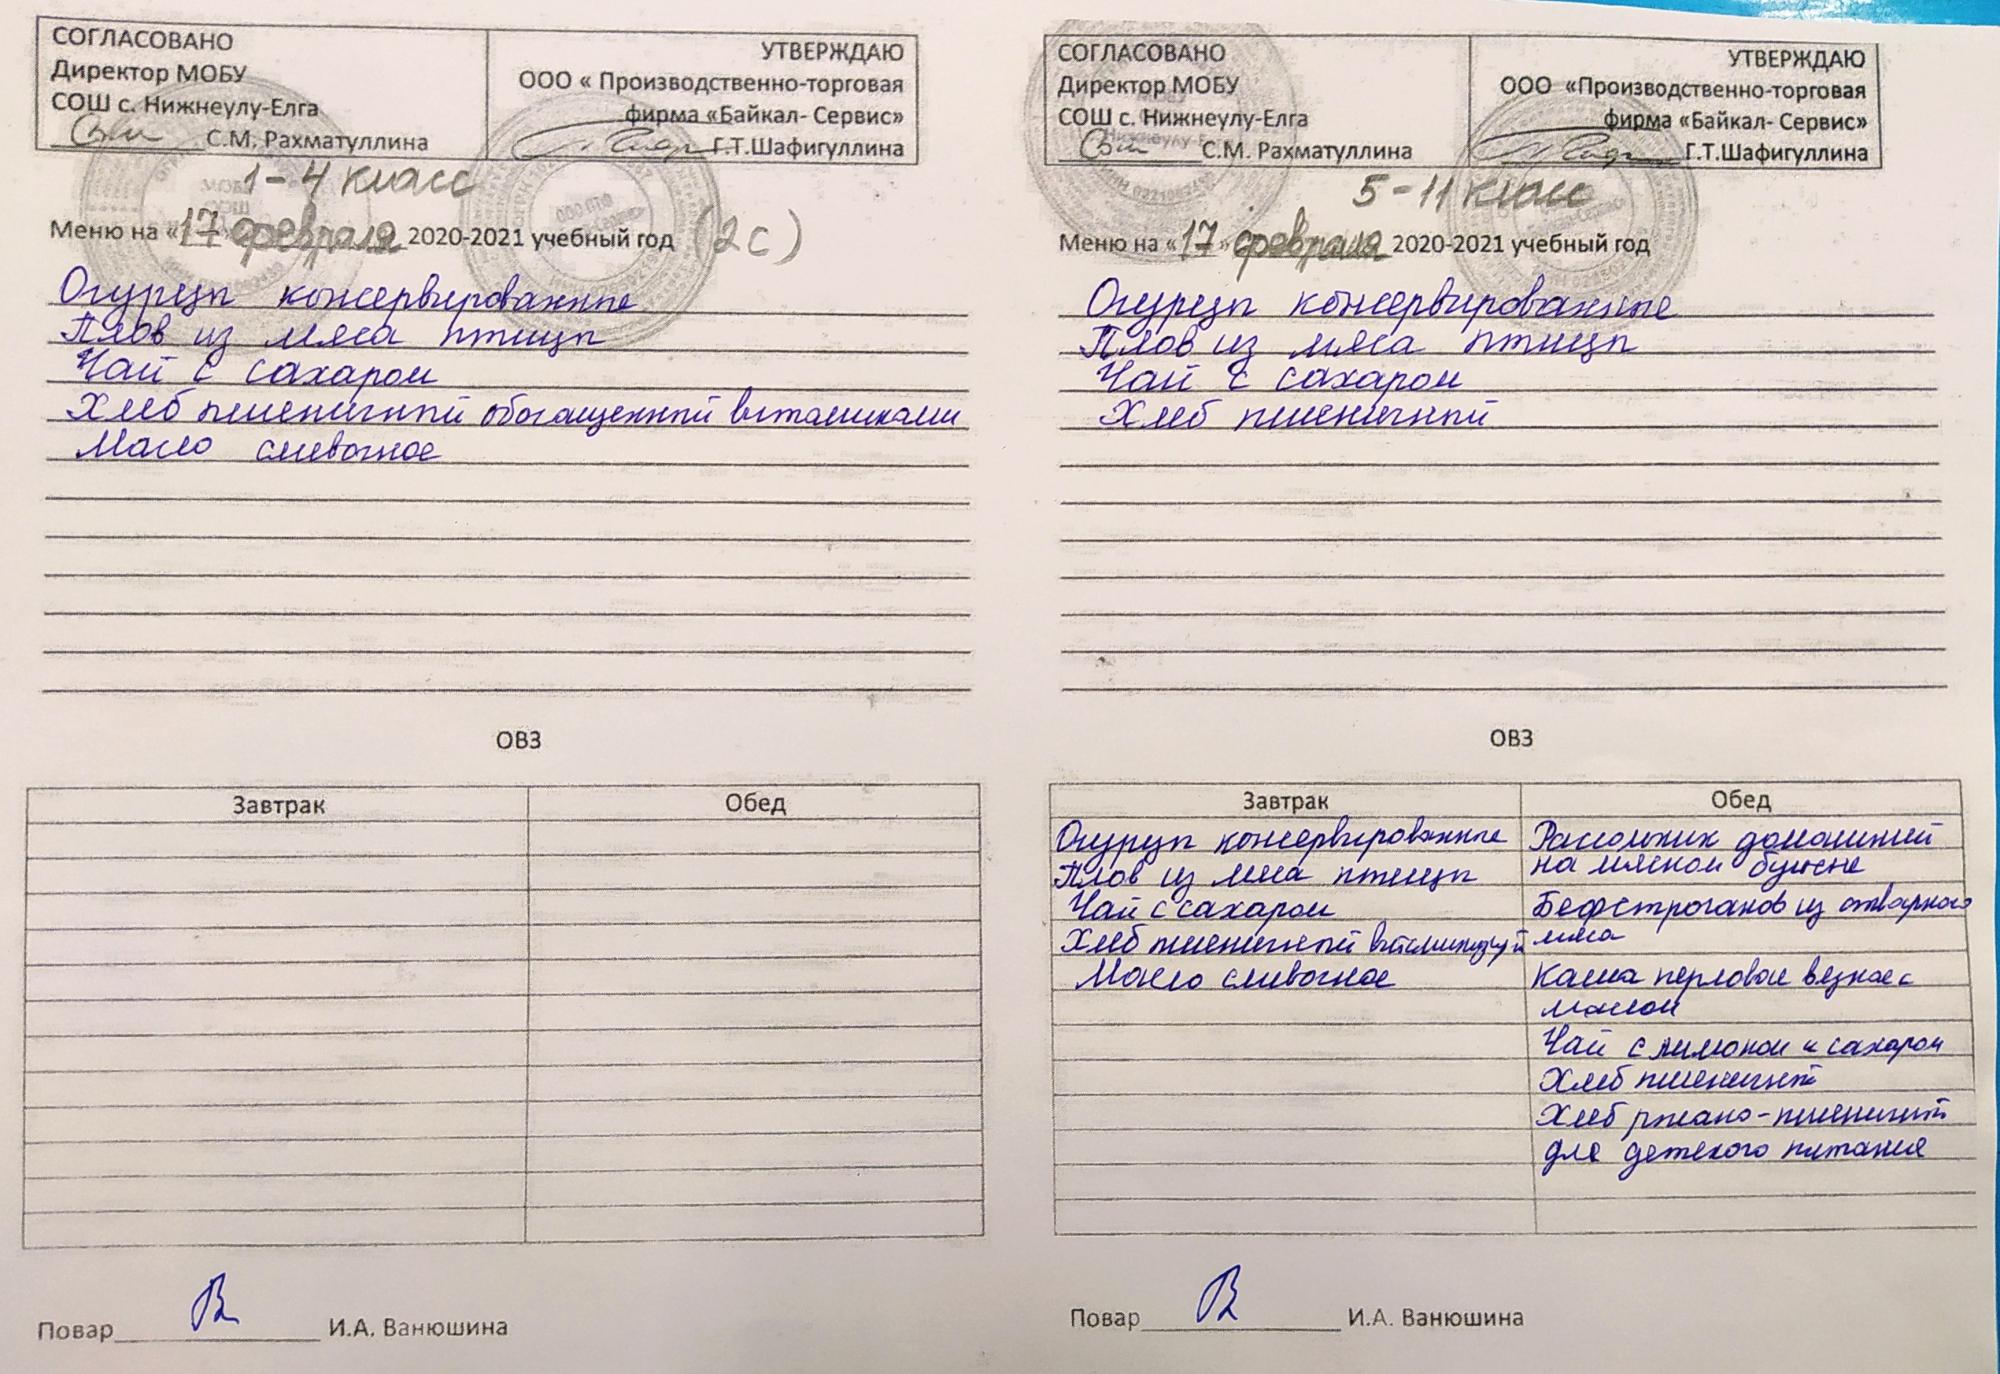 СОГЛАСОВАНО
Директор МОБУ
СОШ с. Нижнеулу-Елга
С.М. Рахматуллина
УТВЕРЖДАЮ
ООО « Производственно-торговая
фирма «Байкал- Сервис»
Г.Т.Шафигуллина
1-4 класс
Меню на «17» февраля 2020-2021 учебный год (2 с)
Огурцы консервированные
Плов из мяса птицы
Чай с сахаром
Хлеб пшеничный обогащенный витаминами
Масло сливочное
ОВЗ
Завтрак Обед
Повар И.А. Ванюшина
СОГЛАСОВАНО
Директор МОБУ
СОШ с. Нижнеулу-Елга
С.М. Рахматуллина
УТВЕРЖДАЮ
ООО «Производственно-торговая
фирма «Байкал- Сервис»
Г.Т.Шафигуллина
5-11 класс
Меню на «17» февраля 2020-2021 учебный год
Огурцы консервированные
Плов из мяса птицы
Чай с сахаром
Хлеб пшеничный
ОВЗ
Завтрак Обед
Огурцы консервированные
Плов из мяса птицы
Чай с сахаром
Хлеб пшеничный
Масло сливочное
Рассольник домашний
на мясном бульоне
Бефстроганов из отварного
мяса
Каша перловая вязкая с
маслом
Чай с лимоном и сахаром
Хлеб пшеничный
Хлеб ржано-пшеничный
для детского питания
Повар И.А. Ванюшина